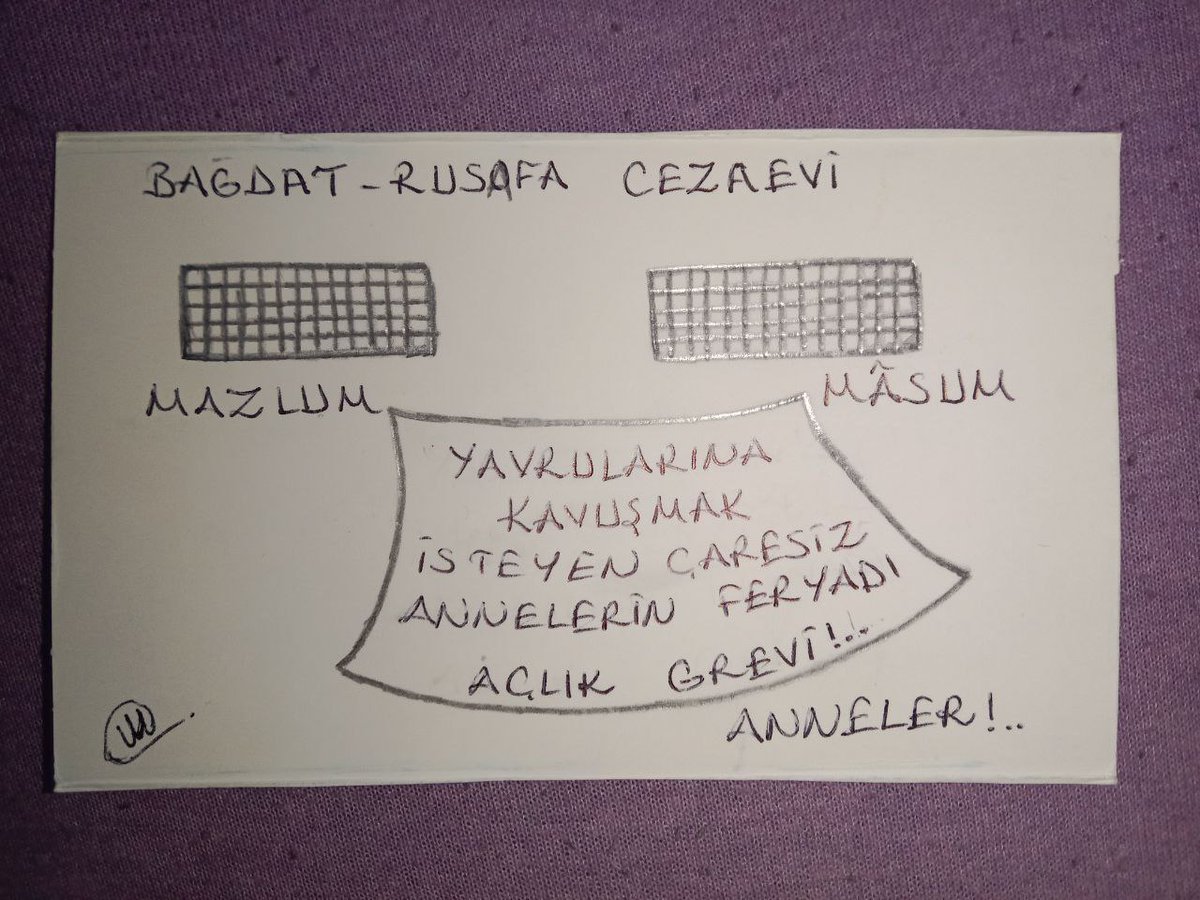 BAĞDAT-RUSAFA CEZAEVİ
MAZLUM MÂSUM
YAVRULARINA
KAVUŞMAK
İSTEYEN ÇARESİZ
ANNELERİN FERYADI
AÇLIK GREVİ!..
ANNELER!..